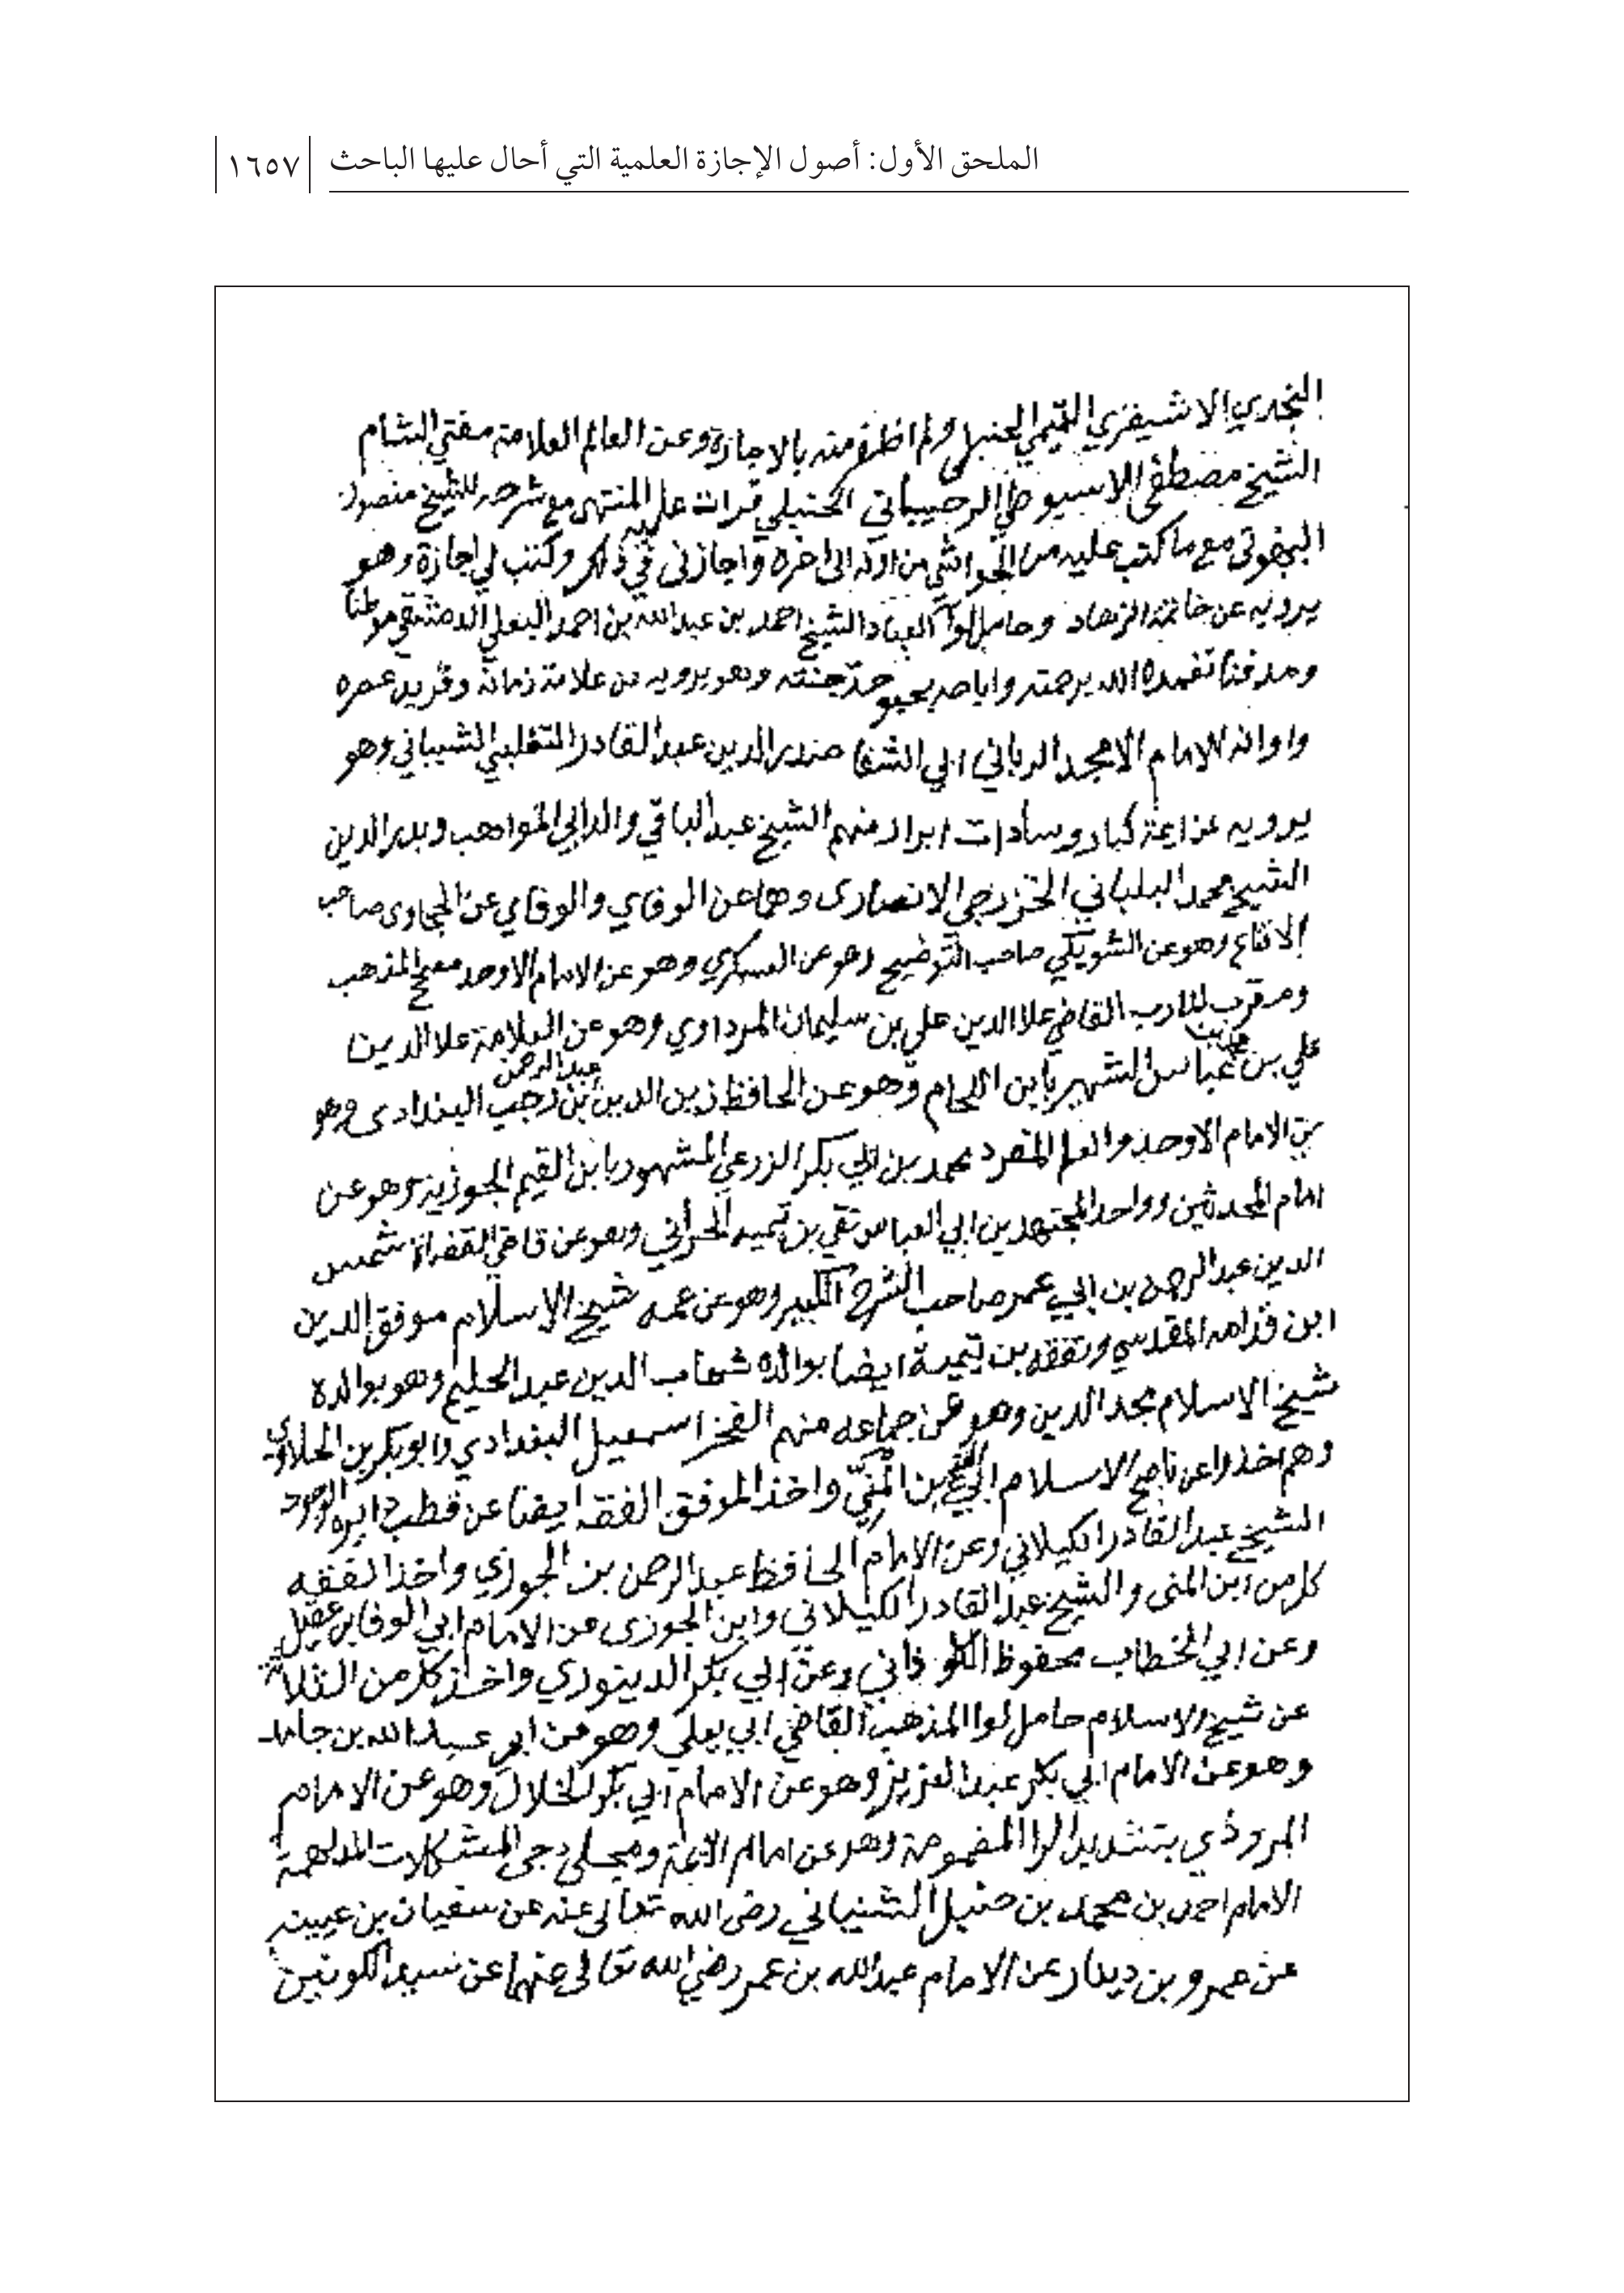 الملحق الأول: أصول الإجازة العلمية التي أحال عليها الباحث
١٦٥٧
النجدي الاشيقري التميمي الحنبلي ولم اظفر منه بالاجازة وعن العالم العلامة مفتي الشام
الشيخ مصطفى الاسيوطي الرحيباني الحنبلي قرات عليه المنتهى مع شرحه للشيخ منصور
البهوتي مع ما كتب عليه من الحواشي من اوله الى اخره واجازني في ذلك وكتب لي اجازة وهو
يرويه عن خاتمة الزهاد وحامل لوآ العباد الشيخ احمد بن عبدالله بن احمد البعلي الدمشقي موطنا
ومدفنا تغمده الله برحمته واياه جنته وهو يرويه عن علامة زمانه وفريد عصره
واوانه الامام الامجد الرباني ابي التقا عبد القادر التغلبي الشيباني وهو
يرويه عن ايمة كبار وسادات ابرار منهم الشيخ عبد الباقي والد ابي المواهب وبدر الدين
الشيخ محمد البلباني الخزرجي الانصارى وهما عن الوفاي والوفاي عن الحجاوى صاحب
الاقناع وهو عن الشويكي صاحب التوضيح وهو عن العسكري وهو عن الامام الاوحد مصحح المذهب
القاضي علا الدين علي بن سليمان المرداوي وهو عن العلامة علا الدين
علي بن محمد بن عباس الشهير بابن اللحام وهو عن الحافظ زين الدين عبد الرحمن بن رجب البغدادى وهو
عن الامام الاوحد والعلم المفرد محمد بن ابي بكر الزرعي المشهور بابن القيم الجوزية وهو عن
امام المحدثين وواحد المجتهدين ابي العباس تقي بن تيمية الحراني وهو عن قاضي القضاة شمس
الدين عبد الرحمن بن ابي عمر صاحب الشرح الكبير وهو عن عمه شيخ الاسلام موفق الدين
ابن قدامه المقدسي وتفقه بن تيمية ايضا بوالده شهاب الدين عبد الحليم وهو بوالده
شيخ الاسلام مجد الدين وهو عن جماعه منهم الفخر اسمعيل البغدادي وابو بكر بن الحلاوي
وهم اخذوا عن ناصح الاسلام ابي الفتح بن المنيّ واخذ الموفق الفقه ايضا عن قطب دايره الوجود
الشيخ عبد القادر الكيلاني وعن الامام الحافظ عبد الرحمن بن الجوزي واخذ الفقه
كل من ابن المنى والشيخ عبد القادر الكيلاني وابن الجوزى عن الامام ابي الوفا بن عقيل
وعن ابي الخطاب محفوظ الكلوذاني وعن ابي بكر الدينوري واخذ كل من الثلاثة
عن شيخ الاسلام حامل لوا المذهب القاضي ابي يعلى وهو عن ابي عبد الله بن حامد
وهو عن الامام ابي بكر عبد العزيز وهو عن الامام ابي بكر الخلال وهو عن الامام
المروذي بتشديد الرا المضمومة وهو عن امام الائمة ومجلي دجى المشكلات المدلهمة
الامام احمد بن محمد بن حنبل الشيباني رضى الله تعالى عنه عن سفيان بن عيينه
عن عمرو بن دينار عن الامام عبد الله بن عمر رضي الله تعالى عنهما عن سيد الكونين